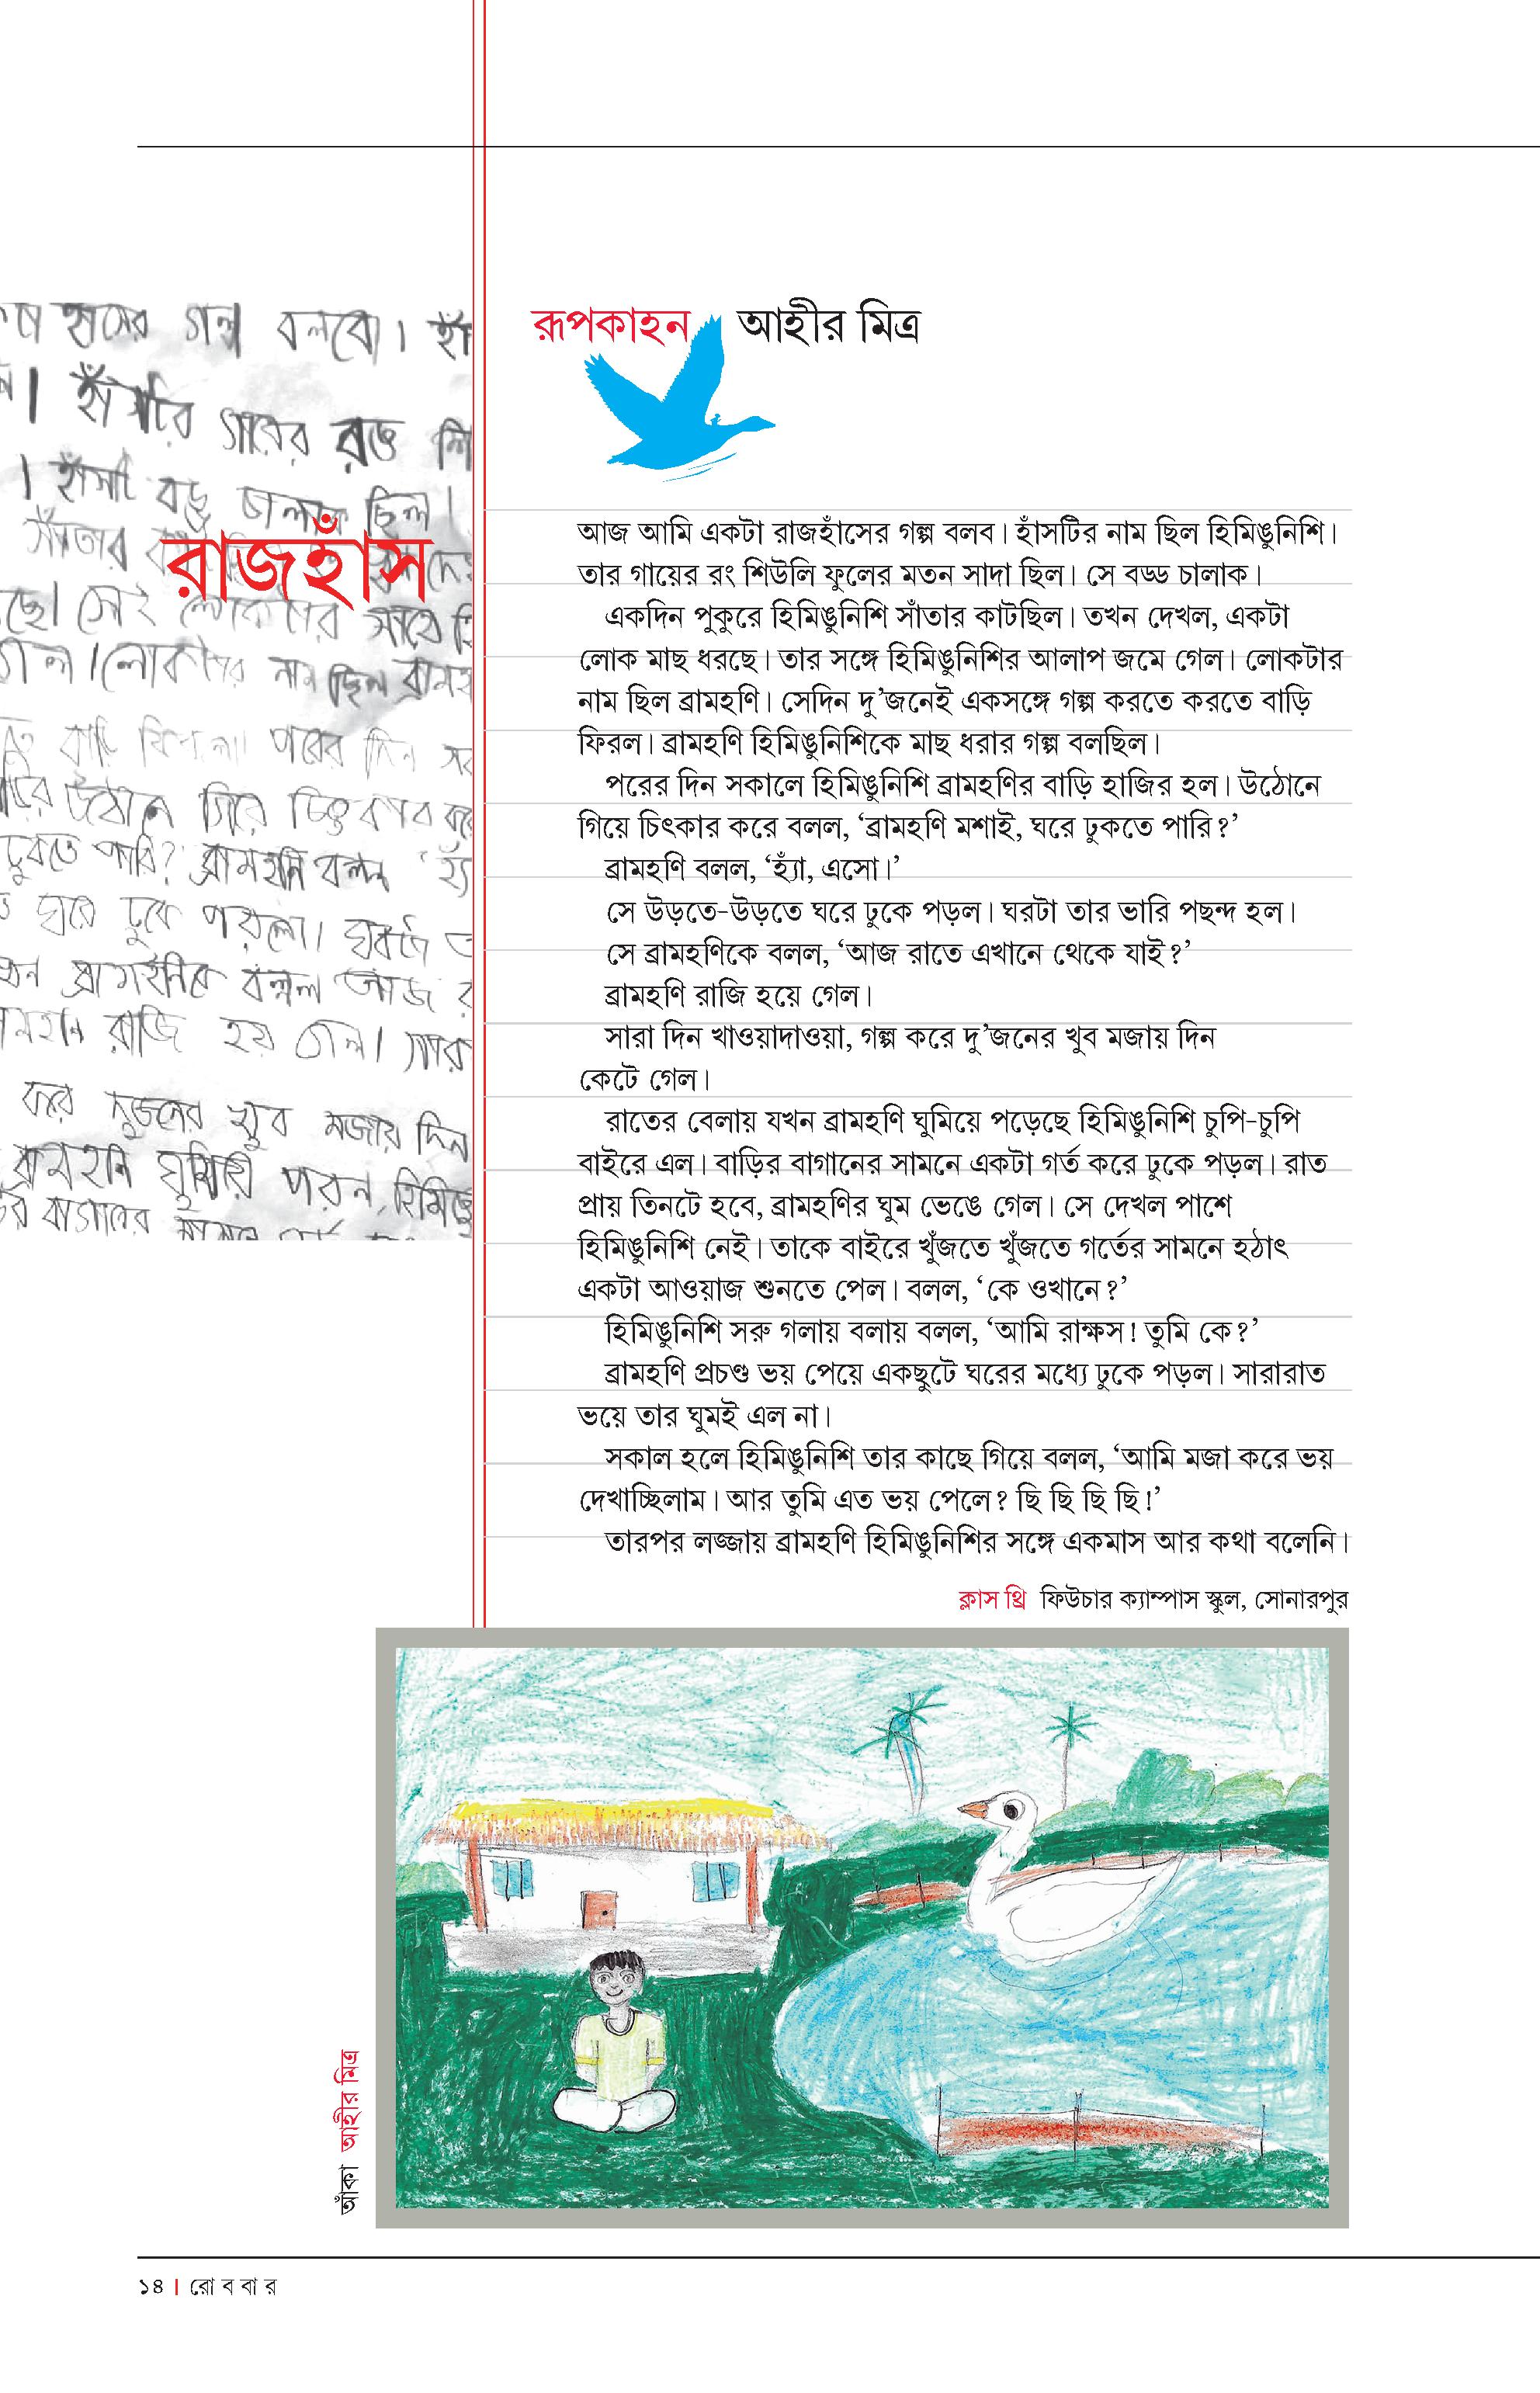 রূপকাহন আহীর মিত্র
রাজহাঁস
আজ আমি একটা রাজহাঁসের গল্প বলব। হাঁসটির নাম ছিল হিমিঙুনিশি।
তার গায়ের রং শিউলি ফুলের মতন সাদা ছিল। সে বড্ড চালাক।
একদিন পুকুরে হিমিঙুনিশি সাঁতার কাটছিল। তখন দেখল, একটা
লোক মাছ ধরছে। তার সঙ্গে হিমিঙুনিশির আলাপ জমে গেল। লোকটার
নাম ছিল ব্রামহণি। সেদিন দু’জনেই একসঙ্গে গল্প করতে করতে বাড়ি
ফিরল। ব্রামহণি হিমিঙুনিশিকে মাছ ধরার গল্প বলছিল।
পরের দিন সকালে হিমিঙুনিশি ব্রামহণির বাড়ি হাজির হল। উঠোনে
গিয়ে চিৎকার করে বলল, ‘ব্রামহণি মশাই, ঘরে ঢুকতে পারি?’
ব্রামহণি বলল, ‘হ্যাঁ, এসো।’
সে উড়তে-উড়তে ঘরে ঢুকে পড়ল। ঘরটা তার ভারি পছন্দ হল।
সে ব্রামহণিকে বলল, ‘আজ রাতে এখানে থেকে যাই?’
ব্রামহণি রাজি হয়ে গেল।
সারা দিন খাওয়াদাওয়া, গল্প করে দু’জনের খুব মজায় দিন
কেটে গেল।
রাতের বেলায় যখন ব্রামহণি ঘুমিয়ে পড়েছে হিমিঙুনিশি চুপি-চুপি
বাইরে এল। বাড়ির বাগানের সামনে একটা গর্ত করে ঢুকে পড়ল। রাত
প্রায় তিনটে হবে, ব্রামহণির ঘুম ভেঙে গেল। সে দেখল পাশে
হিমিঙুনিশি নেই। তাকে বাইরে খুঁজতে খুঁজতে গর্তের সামনে হঠাৎ
একটা আওয়াজ শুনতে পেল। বলল, ‘কে ওখানে?’
হিমিঙুনিশি সরু গলায় বলায় বলল, ‘আমি রাক্ষস! তুমি কে?’
ব্রামহণি প্রচণ্ড ভয় পেয়ে একছুটে ঘরের মধ্যে ঢুকে পড়ল। সারারাত
ভয়ে তার ঘুমই এল না।
সকাল হলে হিমিঙুনিশি তার কাছে গিয়ে বলল, ‘আমি মজা করে ভয়
দেখাচ্ছিলাম। আর তুমি এত ভয় পেলে? ছি ছি ছি ছি!’
তারপর লজ্জায় ব্রামহণি হিমিঙুনিশির সঙ্গে একমাস আর কথা বলেনি।
ক্লাস থ্রি ফিউচার ক্যাম্পাস স্কুল, সোনারপুর
আঁকা আহীর মিত্র
১৪ । রো ব বা র